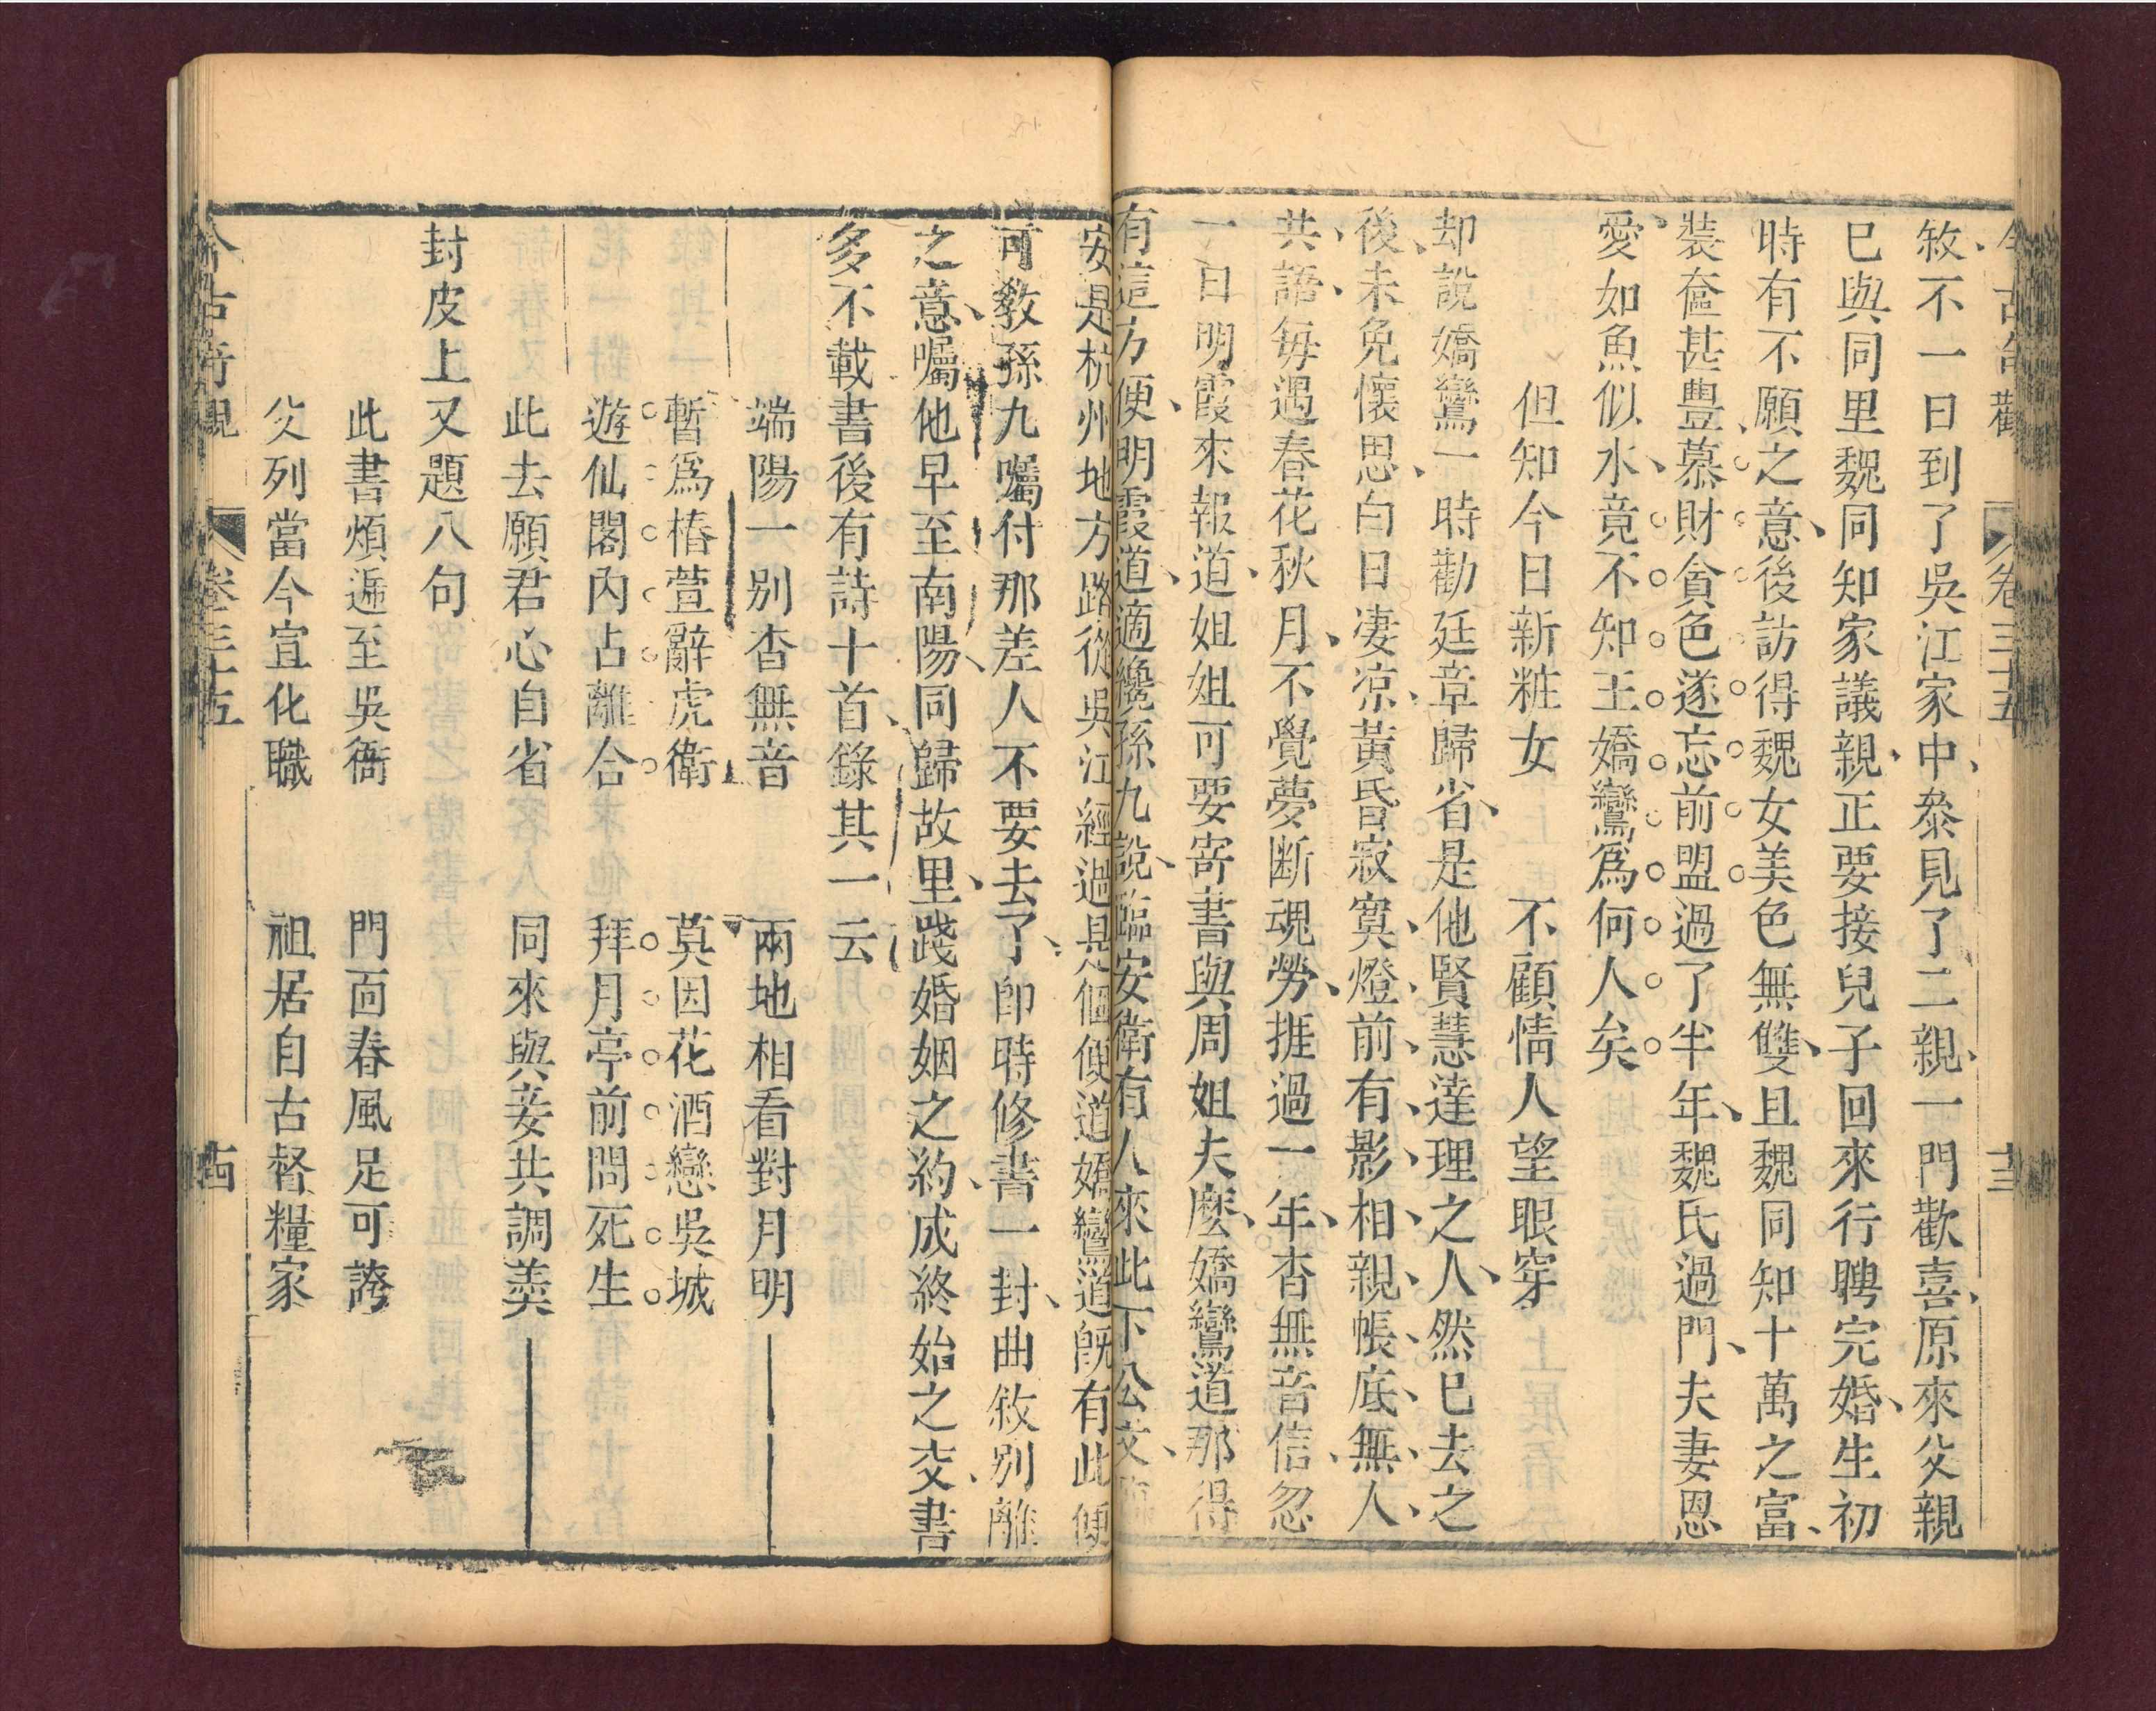 今古奇觀　卷三十五　十三
敘不一日到了吳江家中叅見了二親一門歡喜原來父親
已與同里魏同知家議親正要接兒子回來行聘完婚生初
時有不願之意後訪得魏女美色無雙且魏同知十萬之富
裝奩甚豊慕財貪色遂忘前盟過了半年魏氏過門夫妻恩
愛如魚似水竟不知王嬌鸞爲何人矣
但知今日新粧女　不顧情人望眼穿
却說嬌鸞一時勸廷章歸省是他賢慧達理之人然已去之
後未免懷思白日凄凉黃昏寂寞燈前有影相親帳底無人
共語每遇春花秋月不覺夢断魂勞捱過一年杳無音信忽
一日明霞來報道姐姐可要寄書與周姐夫麽嬌鸞道那得
有這方便明霞道適纔孫九說臨安衛有人來此下公文臨
安是杭州地方路從吳江經過是個便道嬌鸞道旣有此便
可教孫九囑付那差人不要去了卽時修書一封曲敘別離
之意囑他早至南陽同歸故里踐婚姻之約成終始之交書
多不載書後有詩十首錄其一云
端陽一別杳無音　兩地相看對月明
暫爲椿萱辭虎衛　莫因花酒戀吳城
遊仙閣內占離合　拜月亭前問死生
此去願君心自省　同來與妾共調羹
封皮上又題八句
此書煩遞至吳衙　門面春風足可誇
父列當今宣化職　祖居自古督糧家
今古奇觀　卷三十五　十四